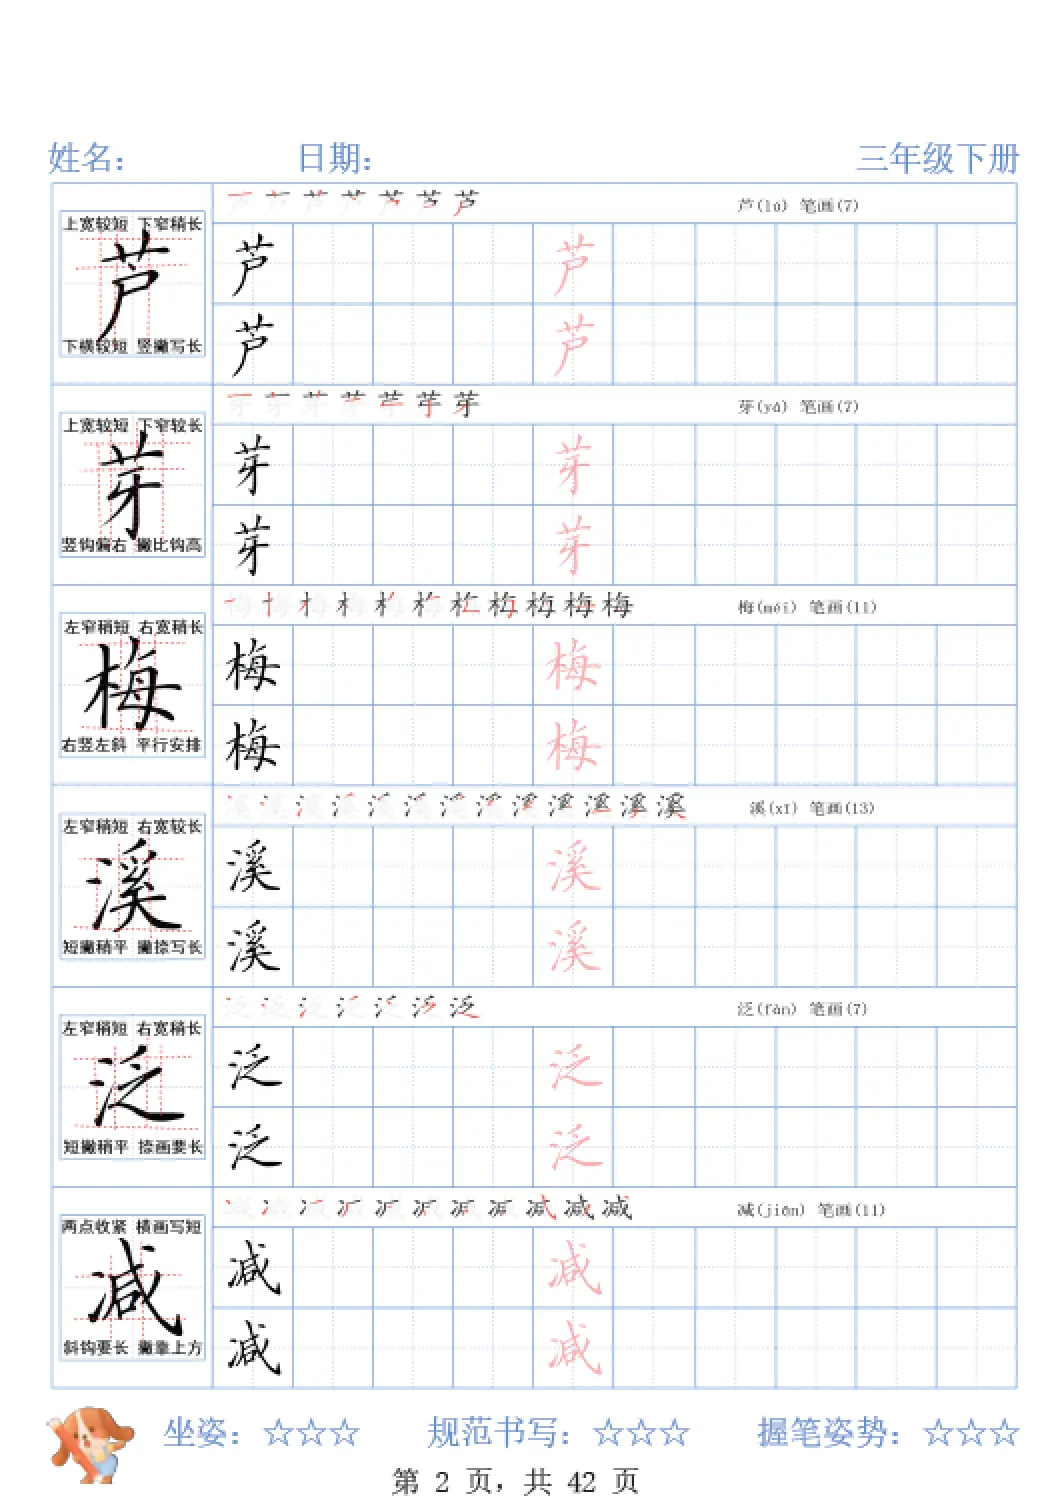 姓名： 日期： 三年级下册
芦(lú) 笔画(7)
上宽较短 下窄稍长
芦 芦 芦
芦 芦
下横较短 竖撇写长
芽(yá) 笔画(7)
上宽较短 下窄较长
芽 芽 芽
芽 芽
竖钩偏右 撇比钩高
梅(méi) 笔画(11)
左窄稍短 右宽稍长
梅 梅 梅
梅 梅
右竖左斜 平行安排
溪(xī) 笔画(13)
左窄稍短 右宽较长
溪 溪 溪
溪 溪
短撇稍平 撇捺写长
泛(fàn) 笔画(7)
左窄稍短 右宽稍长
泛 泛 泛
泛 泛
短撇稍平 捺画要长
减(jiǎn) 笔画(11)
两点收紧 横画写短
减 减 减
减 减
斜钩要长 撇靠上方
坐姿：☆☆☆ 规范书写：☆☆☆ 握笔姿势：☆☆☆
第 2 页，共 42 页